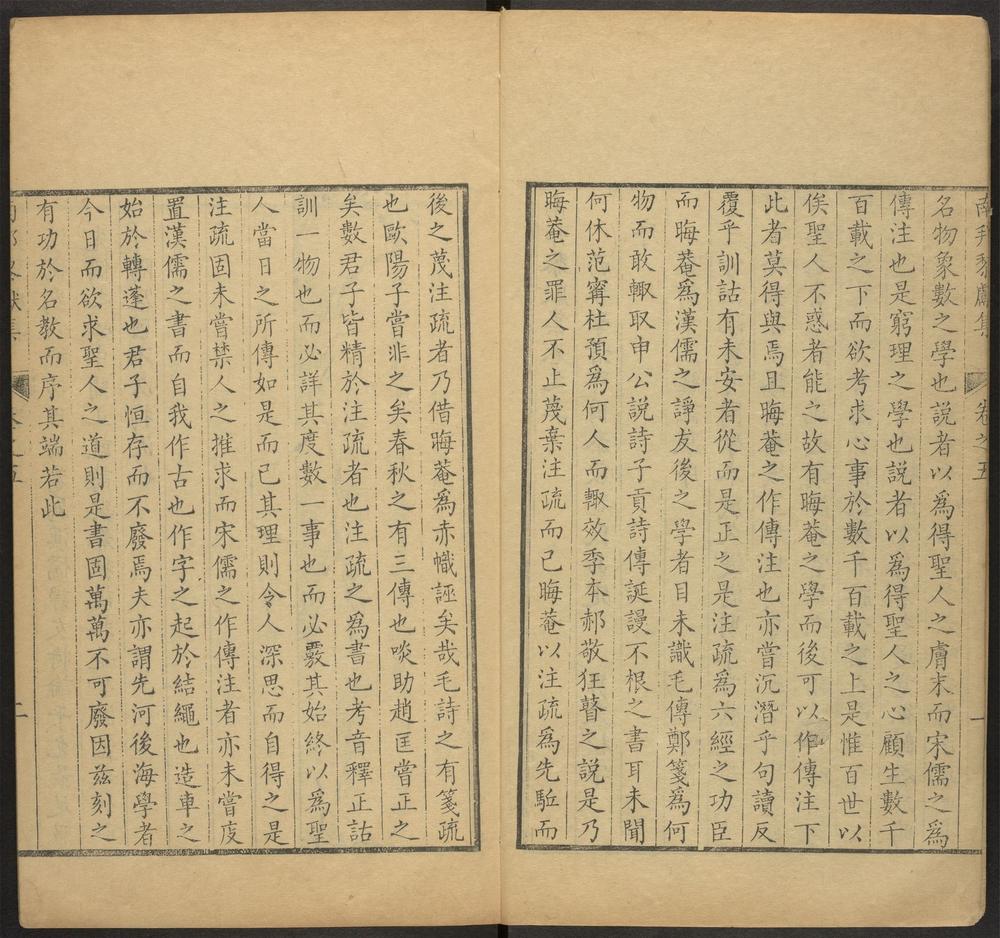 卷之五
一
名物象數之學也說者以為得聖人之膚末而宋儒之為
傳注也是窮理之學也說者以為得聖人之心顧生數千
百載之下而欲考求心事於數千百載之上是惟百世以
俟聖人不惑者能之故有晦菴之學而後可以作傳注下
此者莫得與焉且晦菴之作傳注也亦嘗沉潛乎句讀反
覆乎訓詁有未安者從而是正之是注疏為六經之功臣
而晦菴為漢儒之諍友後之學者目未識毛傳鄭箋為何
物而敢輙取申公說詩子貢詩傳誕謾不根之書耳未聞
何休范甯杜預為何人而輙效季本郝敬狂瞽之說是乃
晦菴之罪人不止蔑棄注疏而已晦菴以注疏為先駈而
後之蔑注疏者乃借晦菴為赤幟誣矣哉毛詩之有箋疏
也歐陽子嘗非之矣春秋之有三傳也啖助趙匡嘗正之
矣數君子皆精於注疏者也注疏之為書也考音釋正詁
訓一物也而必詳其度數一事也而必覈其始終以為聖
人當日之所傳如是而已其理則令人深思而自得之是
注疏固未嘗禁人之推求而宋儒之作傳注者亦未嘗庋
置漢儒之書而自我作古也作字之起於結繩也造車之
始於轉蓬也君子恒存而不廢焉夫亦謂先河後海學者
今日而欲求聖人之道則是書固萬萬不可廢因兹刻之
有功於名教而序其端若此
二